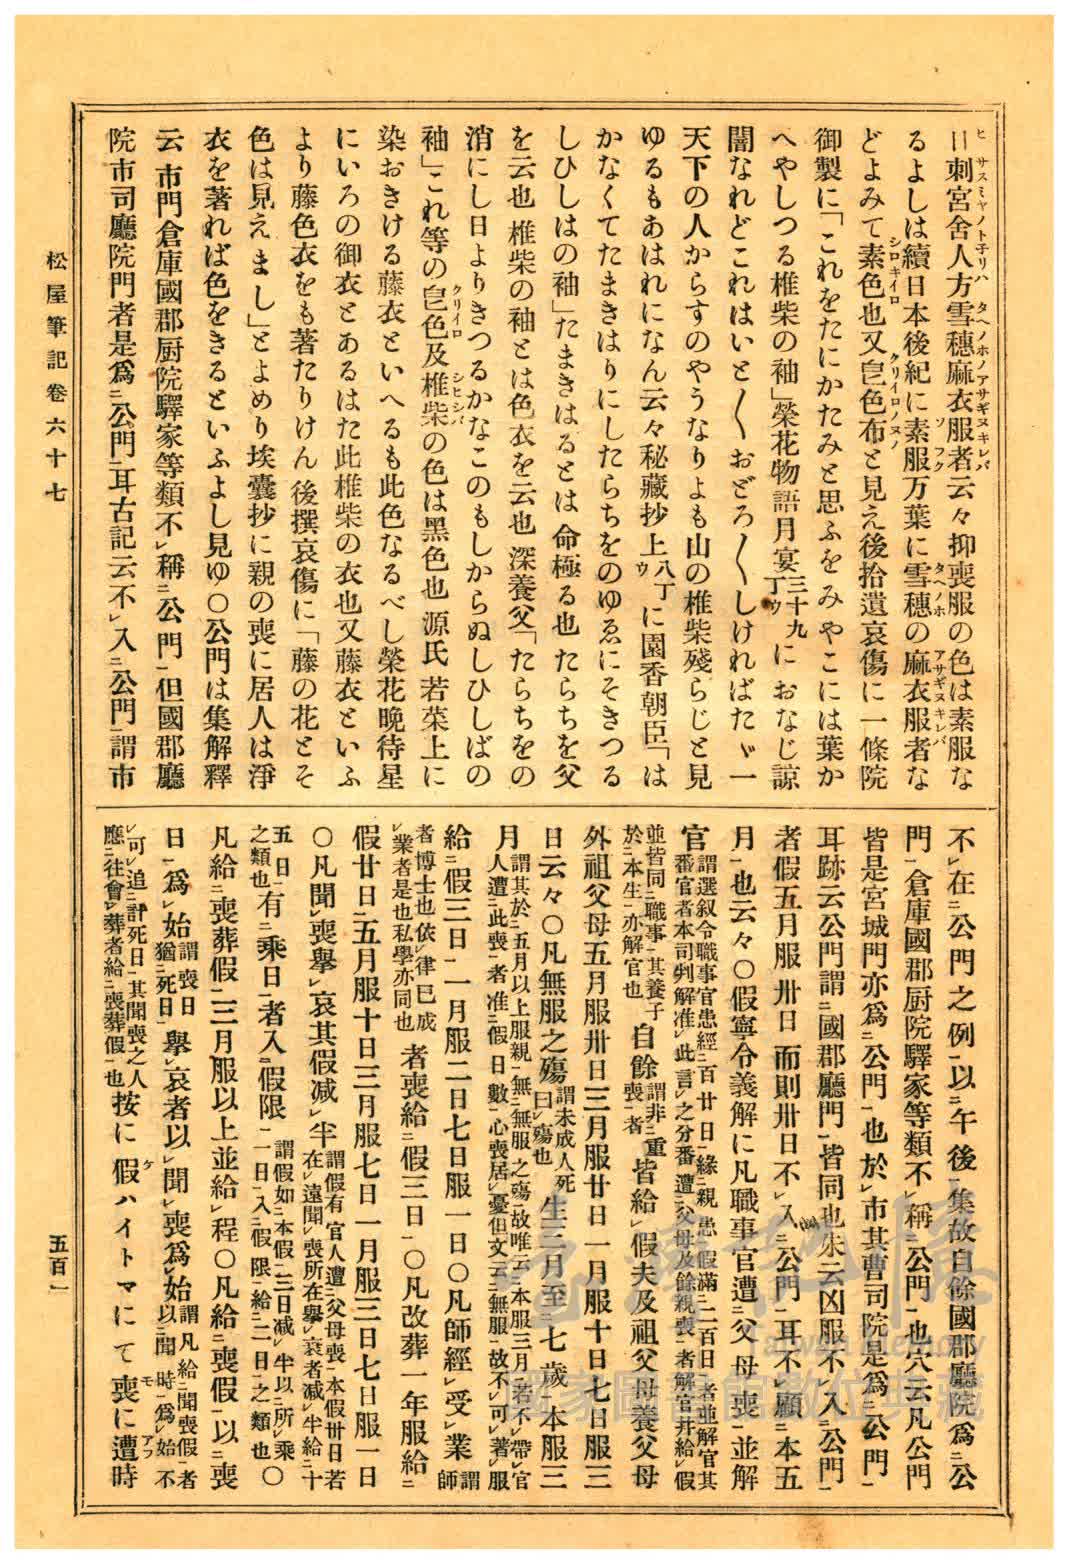 日刺宮舍人方雪穗麻衣服者云々抑喪服の色は素服な
るよしは續日本後紀に素服万葉に雪穗の麻衣服者な
どよみて素色也又皀色布と見え後拾遺哀傷に一條院
御製に「これをたにかたみと思ふをみやこには葉か
へやしつる椎柴の袖」榮花物語月宴三十九丁ウにおなじ諒
闇なれどこれはいと〱おどろ〱しければたゞ一
天下の人からすのやうなりよも山の椎柴殘らじと見
ゆるもあはれになん云々秘藏抄上八丁ウに園香朝臣「は
かなくてたまきはりにしたらちをのゆゑにそきつる
しひしはの袖」たまきはるとは命極る也たらちを父
を云也椎柴の袖とは色衣を云也深養父「たらちをの
消にし日よりきつるかなこのもしからぬしひしばの
袖」これ等の皀色及椎柴の色は黑色也源氏若菜上に
染おきける藤衣といへるも此色なるべし榮花晩待星
にいろの御衣とあるはた此椎柴の衣也又藤衣といふ
より藤色衣をも著たりけん後撰哀傷に「藤の花とそ
色は見えまし」とよめり埃囊抄に親の喪に居人は淨
衣を著れば色をきるといふよし見ゆ〇公門は集解釋
云市門倉庫國郡厨院驛家等類不レ稱ニ公門一但國郡廳
院市司廳院門者是爲ニ公門一耳古記云不レ入ニ公門一謂市
不レ在ニ公門之例一以ニ午後一集故自餘國郡廳院爲ニ公
門一倉庫國郡厨院驛家等類不レ稱ニ公門一也穴云凡公門
皆是宮城門亦爲ニ公門一也於レ市其曹司院是爲ニ公門一
耳跡云公門謂ニ國郡廳門一皆同也朱云凶服不レ入ニ公門一
者假五月服卅日而則卅日不レ入ニ公門一耳不レ顧ニ本五
月一也云々〇假寧令義解に凡職事官遭ニ父母喪一並解
官謂選叙令職事官患經ニ百廿日一緣ニ親患一假滿ニ二百日一者並解官其番官者本司判解准ニ此言一之分番遭ニ父母及餘親喪一者解官幷給レ假並皆同ニ職事一其養子於ニ本生一亦解官也自餘謂非ニ重喪一者皆給レ假夫及祖父母養父母
外祖父母五月服卅日三月服廿日一月服十日七日服三
日云々〇凡無服之殤謂未成人死曰レ殤也生三月至ニ七歲一本服三
月謂其於ニ五月以上服親一無ニ無服之殤一故唯云ニ本服三月一若不レ帶レ官人遭ニ此喪一者准ニ假日數一心喪居レ憂但文云ニ無服一故不レ可レ著レ服
給ニ假三日一一月服二日七日服一日〇凡師經レ受レ業謂師
者博士也依レ律已成レ業者是也私學亦同也者喪給ニ假三日一〇凡改葬一年服給ニ
假廿日一五月服十日三月服七日一月服三日七日服一日
〇凡聞レ喪擧レ哀其假減レ半謂假有官人遭ニ父母喪一本假卅日若在レ遠聞レ喪所在擧レ哀者減レ半給ニ十
五日一有ニ乘日一者入ニ假限一謂假如ニ本假一三日減レ半以ニ所レ乘一日一入ニ假限一給ニ二日一之類也〇
凡給ニ喪葬假一三月服以上並給レ程〇凡給ニ喪假一以ニ喪
日一爲レ始謂喪日猶ニ死日一擧レ哀者以レ聞レ喪爲レ始謂凡給ニ聞喪假一者以ニ聞時一爲レ始不レ可レ追ニ計死日一其聞喪之人應ニ往會一レ葬者給ニ喪葬假一也按に假ハイトマにて喪に遭時
松屋筆記卷六十七
五百一
臺灣記憶
Taiwan Memory
國家圖書館數位典藏